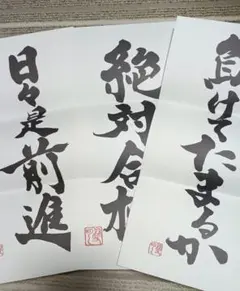 負けてたまるか
絶対合格
日々是前進